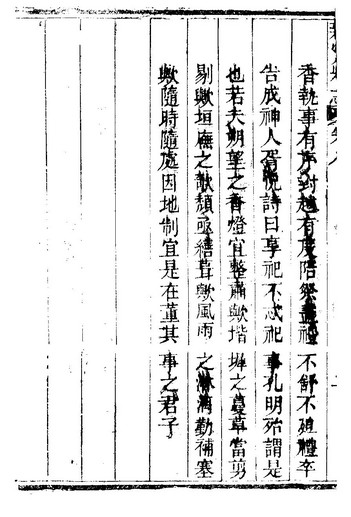 香執事有序對越有度陪祭盡禮不舒不殖禮卒
告成神人胥悅詩曰享祀不忒祀事孔明殆謂是
也若夫朔望之香燈宜整肅歟堦墀之蔓草當剪
剔歟垣廡之欹頹亟繕葺歟風雨之淋漓勤補塞
歟隨時隨處因地制宜是在董其事之君子